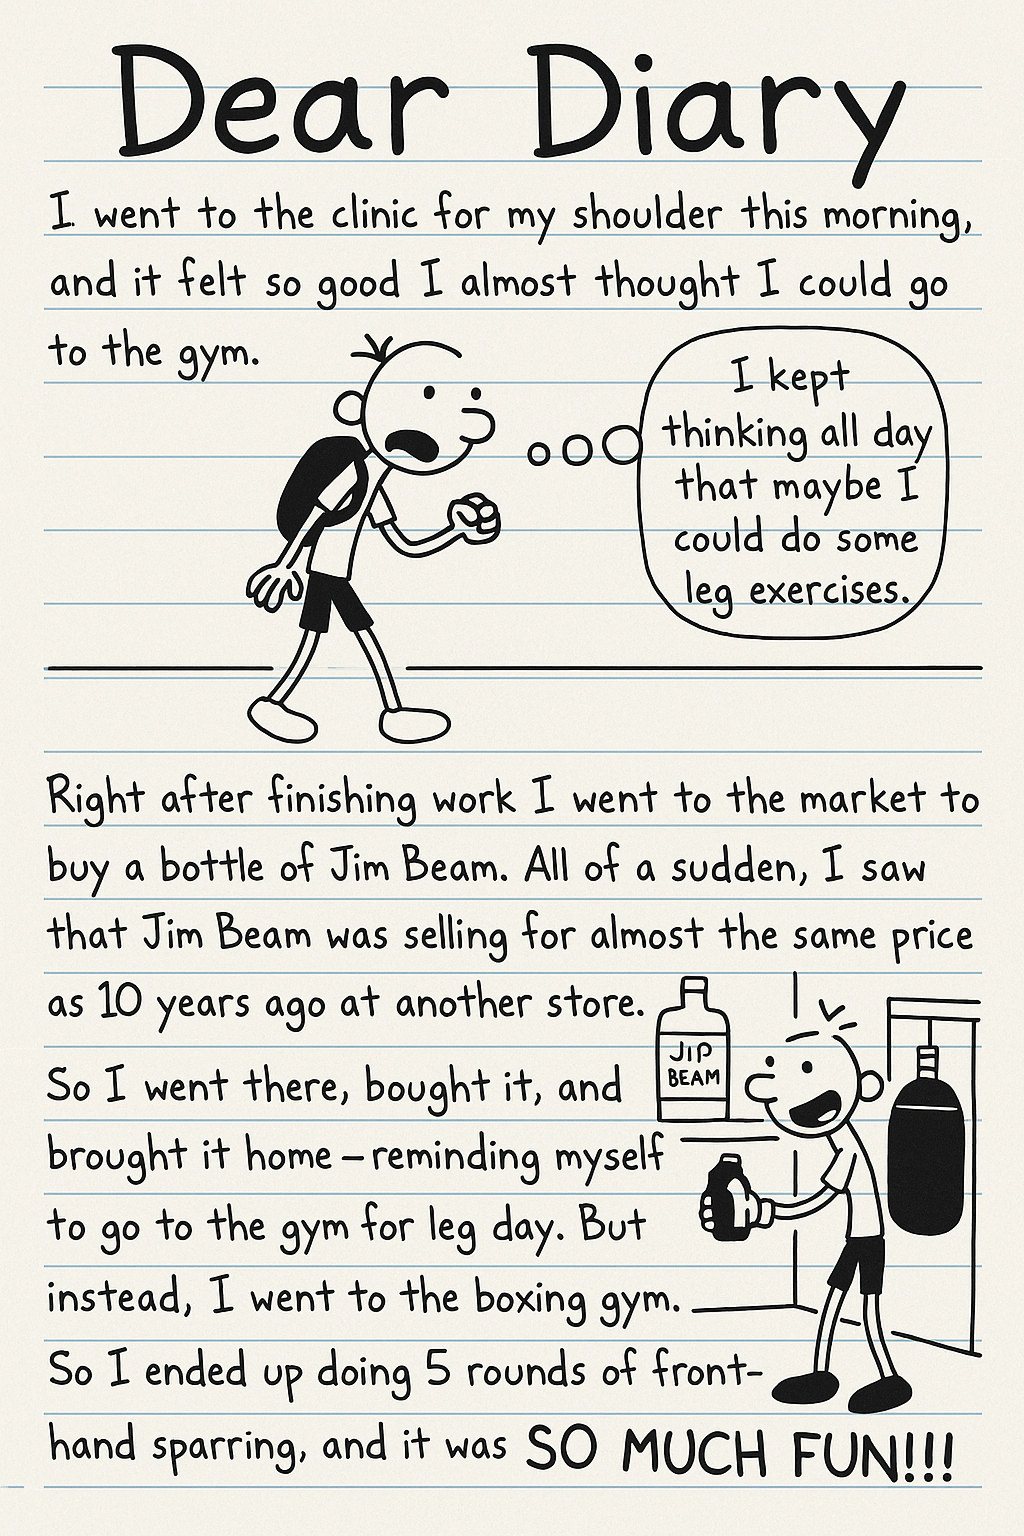 Dear Diary
I went to the clinic for my shoulder this morning,
and it felt so good I almost thought I could go
to the gym.
I kept
thinking all day
that maybe I
could do some
leg exercises.
Right after finishing work I went to the market to
buy a bottle of Jim Beam. All of a sudden, I saw
that Jim Beam was selling for almost the same price
as 10 years ago at another store.
JIP
BEAM
So I went there, bought it, and
brought it home – reminding myself
to go to the gym for leg day. But
instead, I went to the boxing gym.
So I ended up doing 5 rounds of front-
hand sparring, and it was SO MUCH FUN!!!